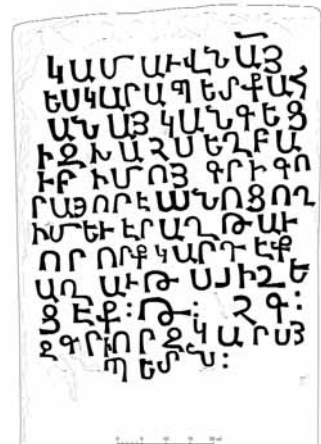 ԿԱՄ ԱՒՎՆ ԱՅ
ԵՍ ԿԱՐԱՊԵՏ ՔԱՀ
ԱՆԱՅ ԿԱՆԳԵՑ
Ի ԶԽԱՉՍ ԵՂԲԱ
ԻՐ ԻՄՈՅ ԳՐԻԳՈ
ՐԱՅ ՈՐ Է
ԻՄ ԵՒ ԷՐ ԱՂԹԱՒ
ՈՐ ՈՐՔ ԿԱՐԴ ԷՔ
ԱՂԱՒԹՍ ՅԻՇԵ
ՑԷՔ : Թ : ՉԳ :
ԶԳՐԻՈՐԶ ԿԱՐՍՅ
ՊԵՏՆ :